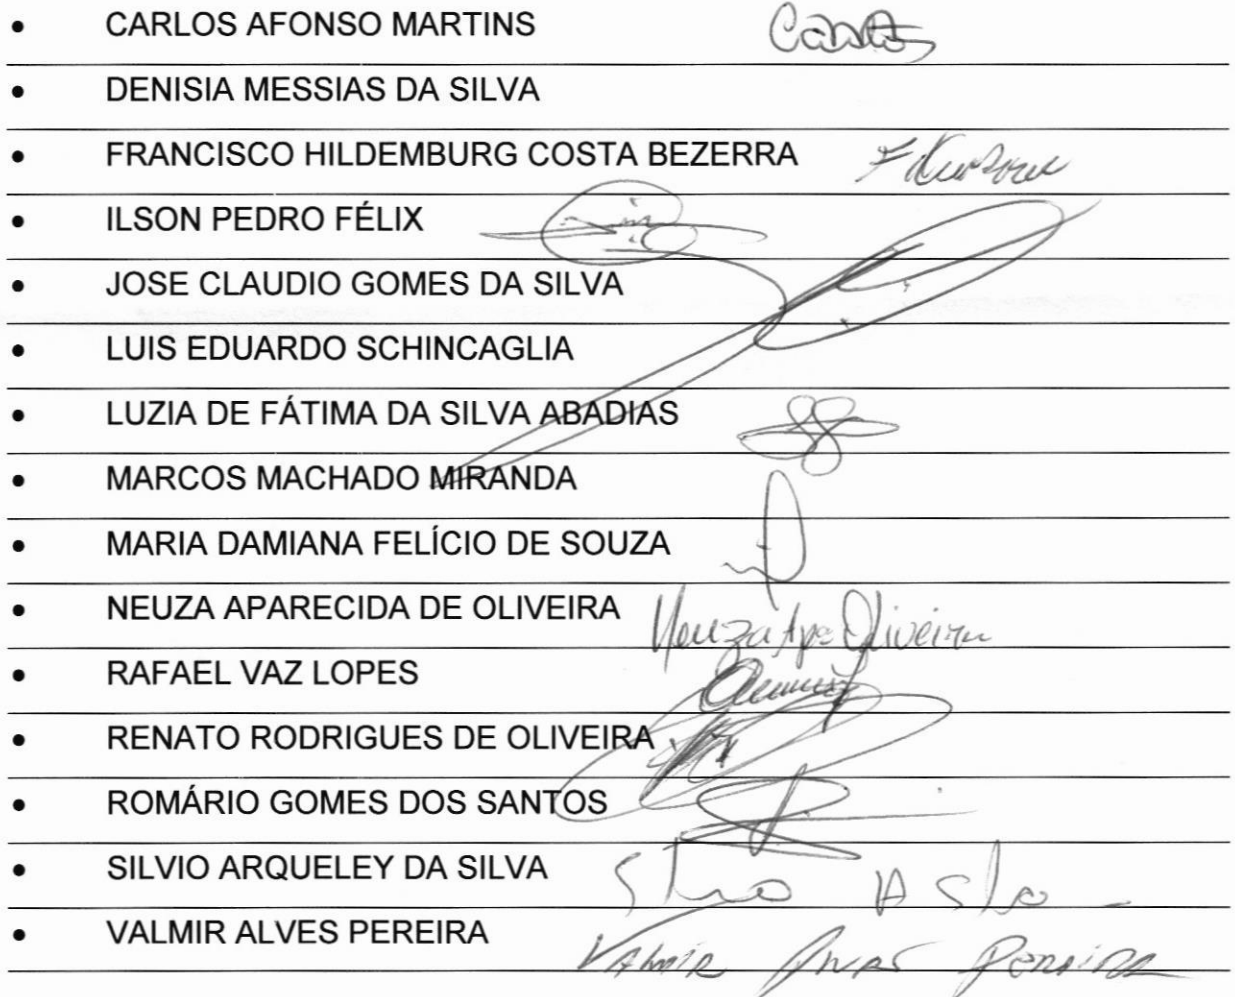 • CARLOS AFONSO MARTINS Carlos
• DENISIA MESSIAS DA SILVA
• FRANCISCO HILDEMBURG COSTA BEZERRA
• ILSON PEDRO FÉLIX
• JOSE CLAUDIO GOMES DA SILVA
• LUIS EDUARDO SCHINCAGLIA
• LUZIA DE FÁTIMA DA SILVA ABADIAS
• MARCOS MACHADO MIRANDA
• MARIA DAMIANA FELÍCIO DE SOUZA
• NEUZA APARECIDA DE OLIVEIRA Neuza Apª Oliveira
• RAFAEL VAZ LOPES
• RENATO RODRIGUES DE OLIVEIRA
• ROMÁRIO GOMES DOS SANTOS
• SILVIO ARQUELEY DA SILVA
• VALMIR ALVES PEREIRA Valmir Alves Pereira